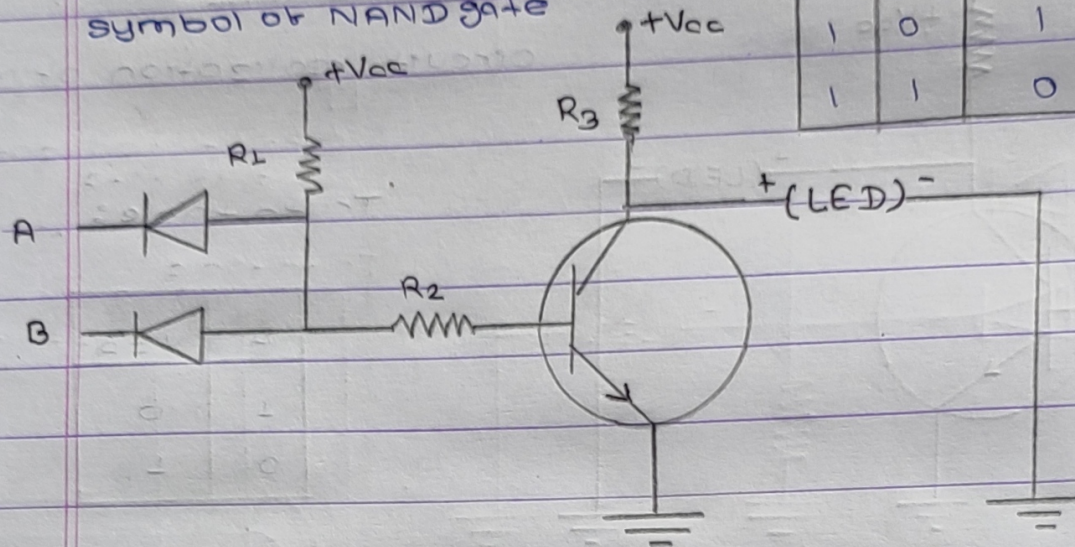 symbol of NAND gate
+Vcc
1 0 1
+Vcc
R3
1 1 0
R1
+(LED)-
A
R2
B